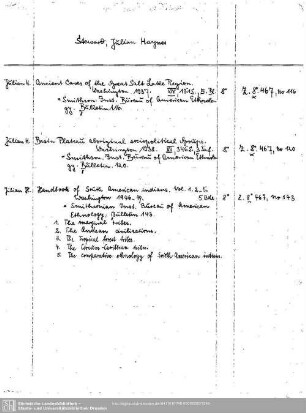 Steward, Julian Haynes
Julian H. Ancient Caves of the Great Salt Lake Region.
Washington 1937. 8° Z. 8° 467, no 116
= Smithson. Inst. Bureau of American Ethnology. Bulletin 116.
Julian H. Basin Plateau aboriginal sociopolitical groups.
Washington 1938. 8° Z. 8° 467, no 120
= Smithson. Inst. Bureau of American Ethnology. Bulletin 120.
Julian H. Handbook of South American Indians. Vol. 1. 2. 5.
Washington 1946. 5 Bde. 8° Z. 8° 467, no 143
= Smithsonian Inst. Bureau of American
Ethnology. Bulletin 143.
1. The marginal tribes.
2. The Andean civilizations.
3. The tropical forest tribes.
4. The Circum-Caribbean tribes.
5. The comparative ethnology of South American Indians.